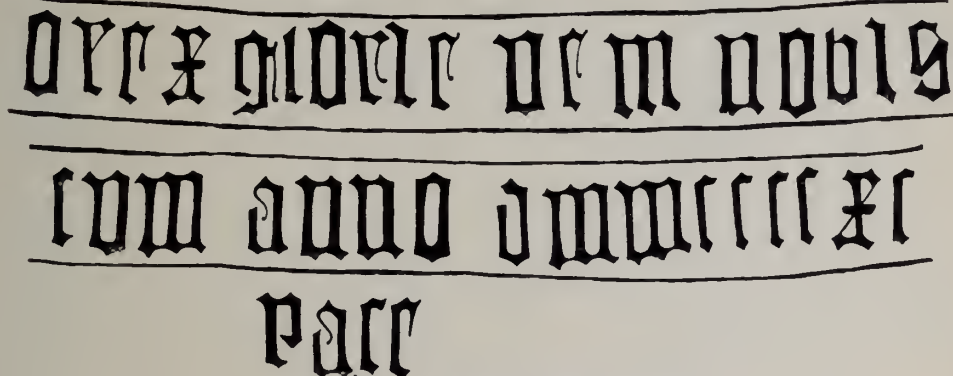 orex glorie veni nobis
cum anno dmmccccxc
pace